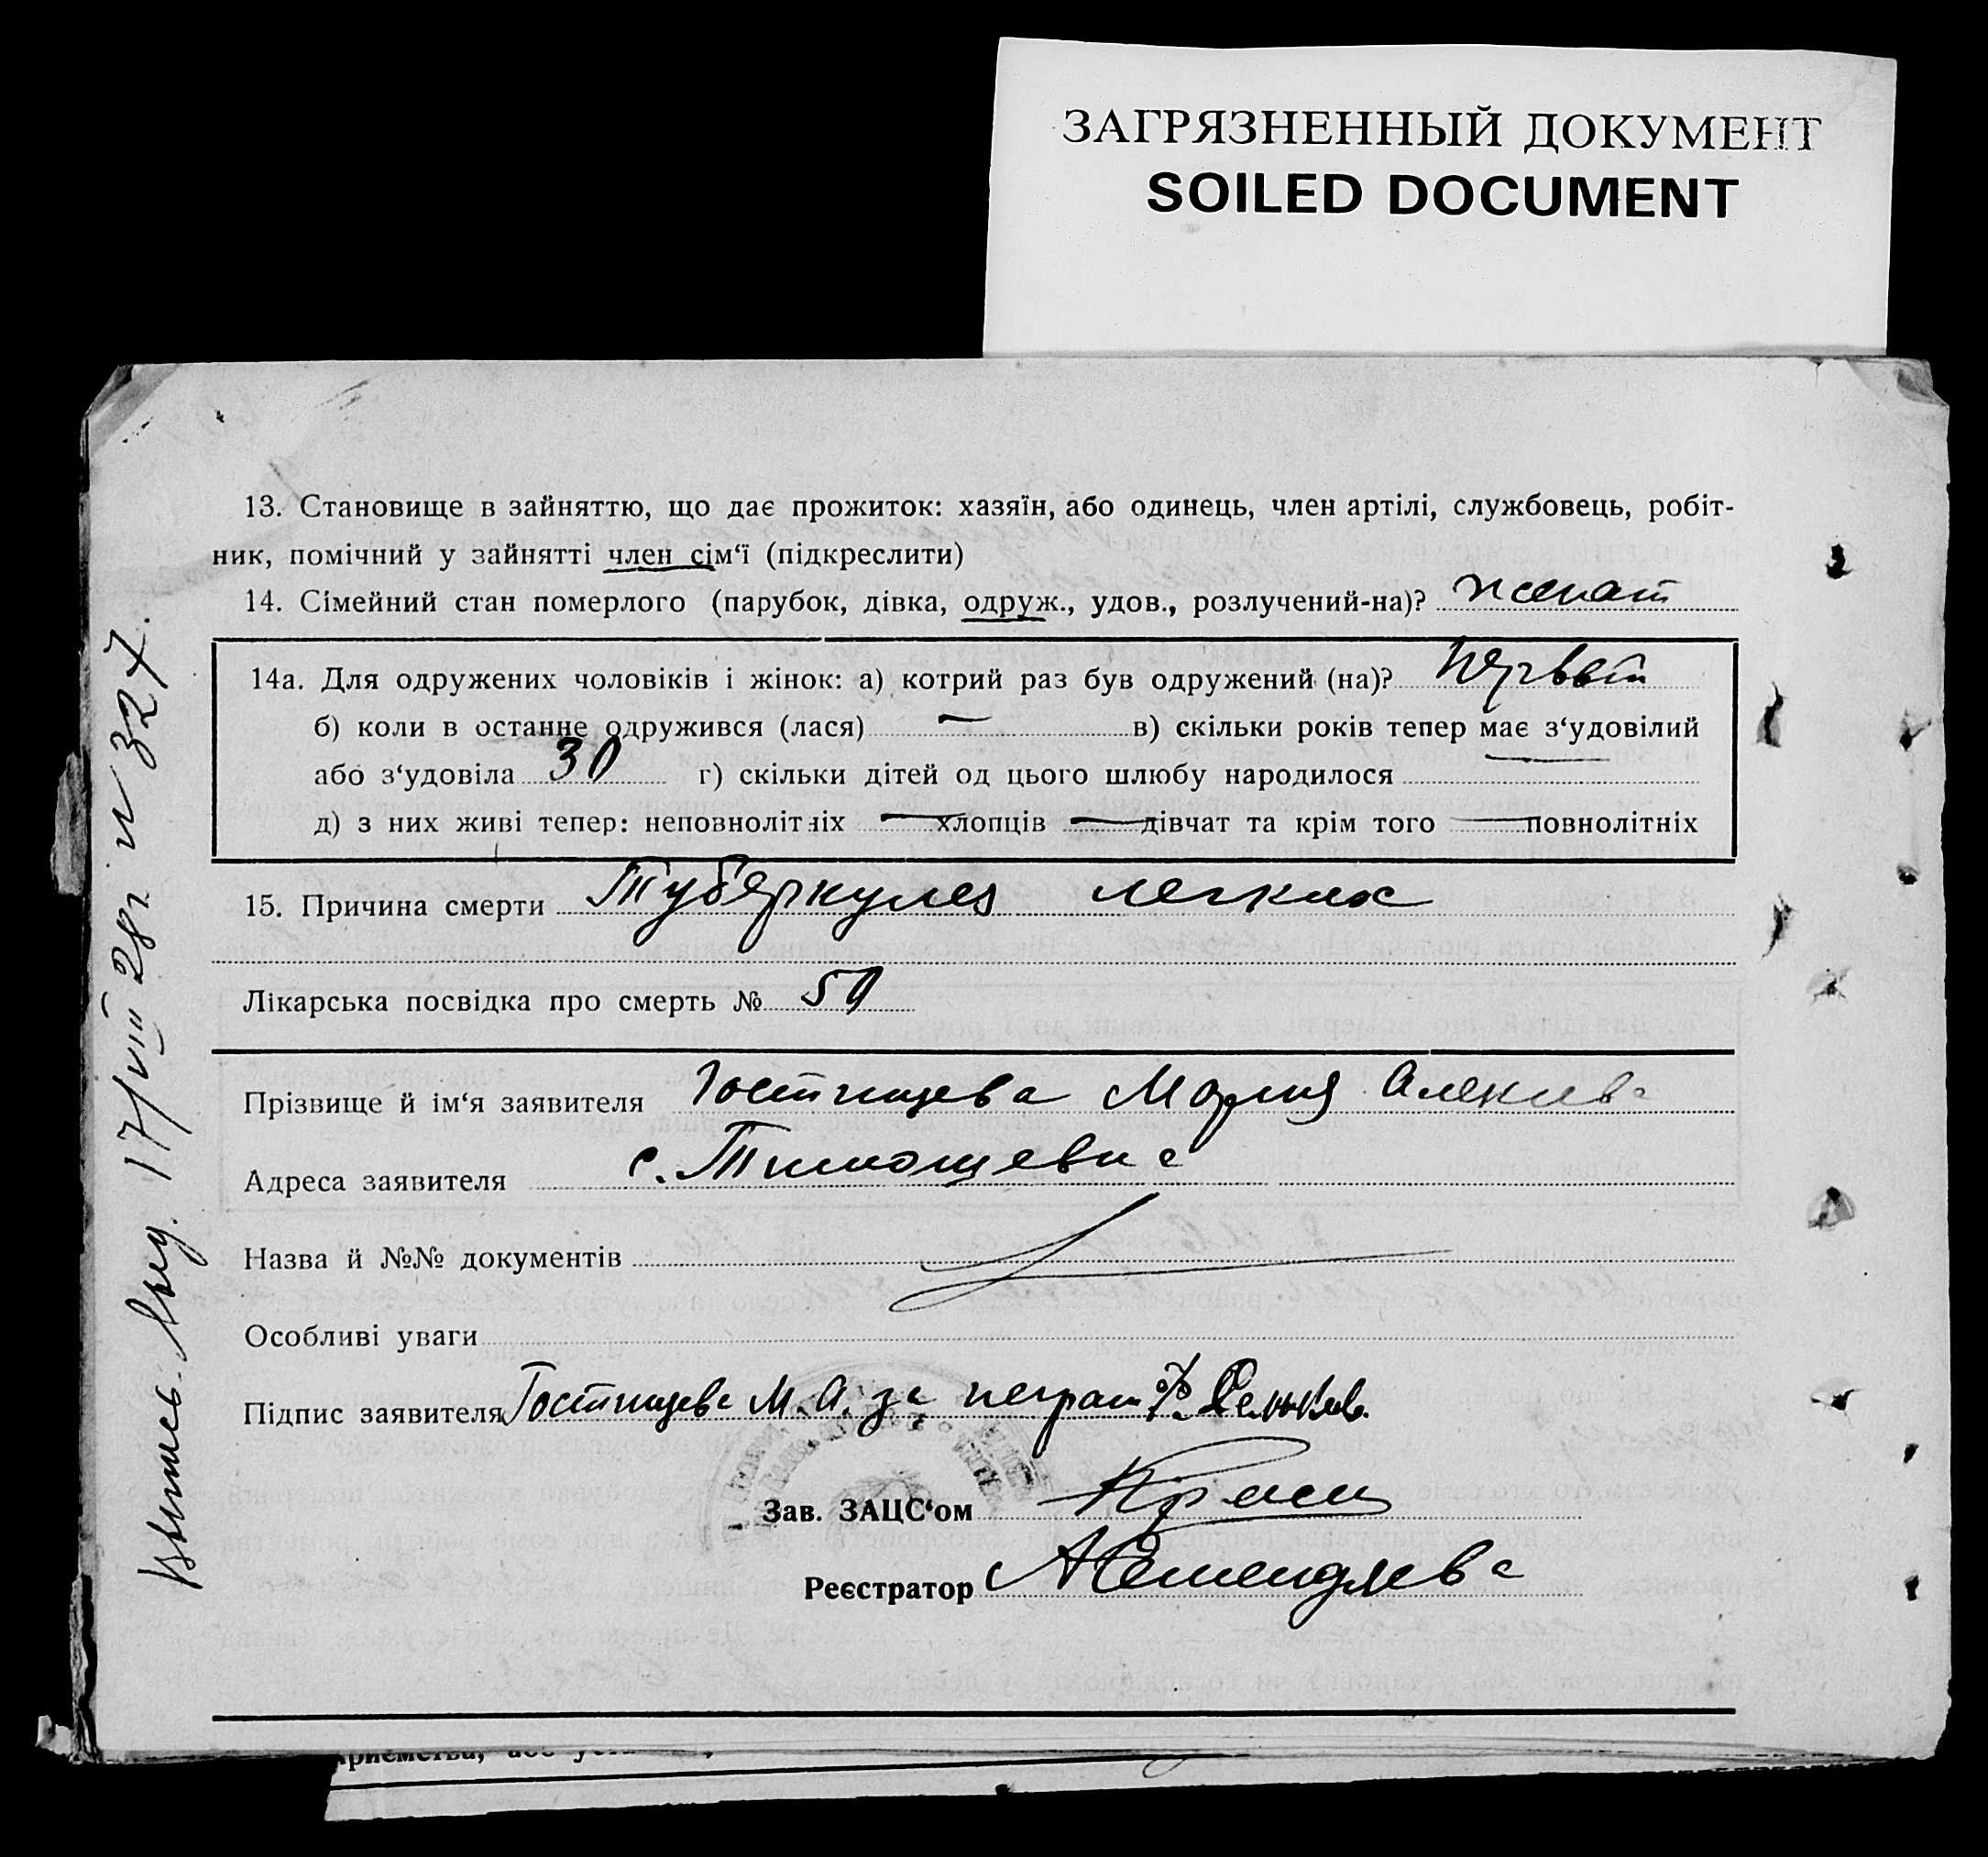 ЗАГРЯЗНЕННЫЙ ДОКУМЕНТ
SOILED DOCUMENT
13. Становище в зайняттю, що дає прожиток: хазяїн, або одинець, член артілі, службовець, робіт-
ник, помічний у зайнятті член сім‘ї (підкреслити)
14. Сімейний стан померлого (парубок, дівка, одруж., удов., розлучений-на)? женат
14а. Для одружених чоловіків і жінок: а) котрий раз був одружений (на)? первый
б) коли в останне одружився (лася) — в) скільки років тепер має з‘удовілий
або з‘удовіла 30 г) скільки дітей од цього шлюбу народилося —
д) з них живі тепер: неповнолітніх — хлопців — дівчат та крім того — повнолітніх
15. Причина смерти Туберкулез легких
Лікарська посвідка про смерть № 50
Прізвище й ім‘я заявителя Гостищева Мария
Адреса заявителя с.
Назва й №№ документів
Особливі уваги
Підпис заявителя Гостищева М. А. за неграм
Зав. ЗАЦС‘ом
Реєстратор
Выпись выд. 17/VIII 28 г. № 327.